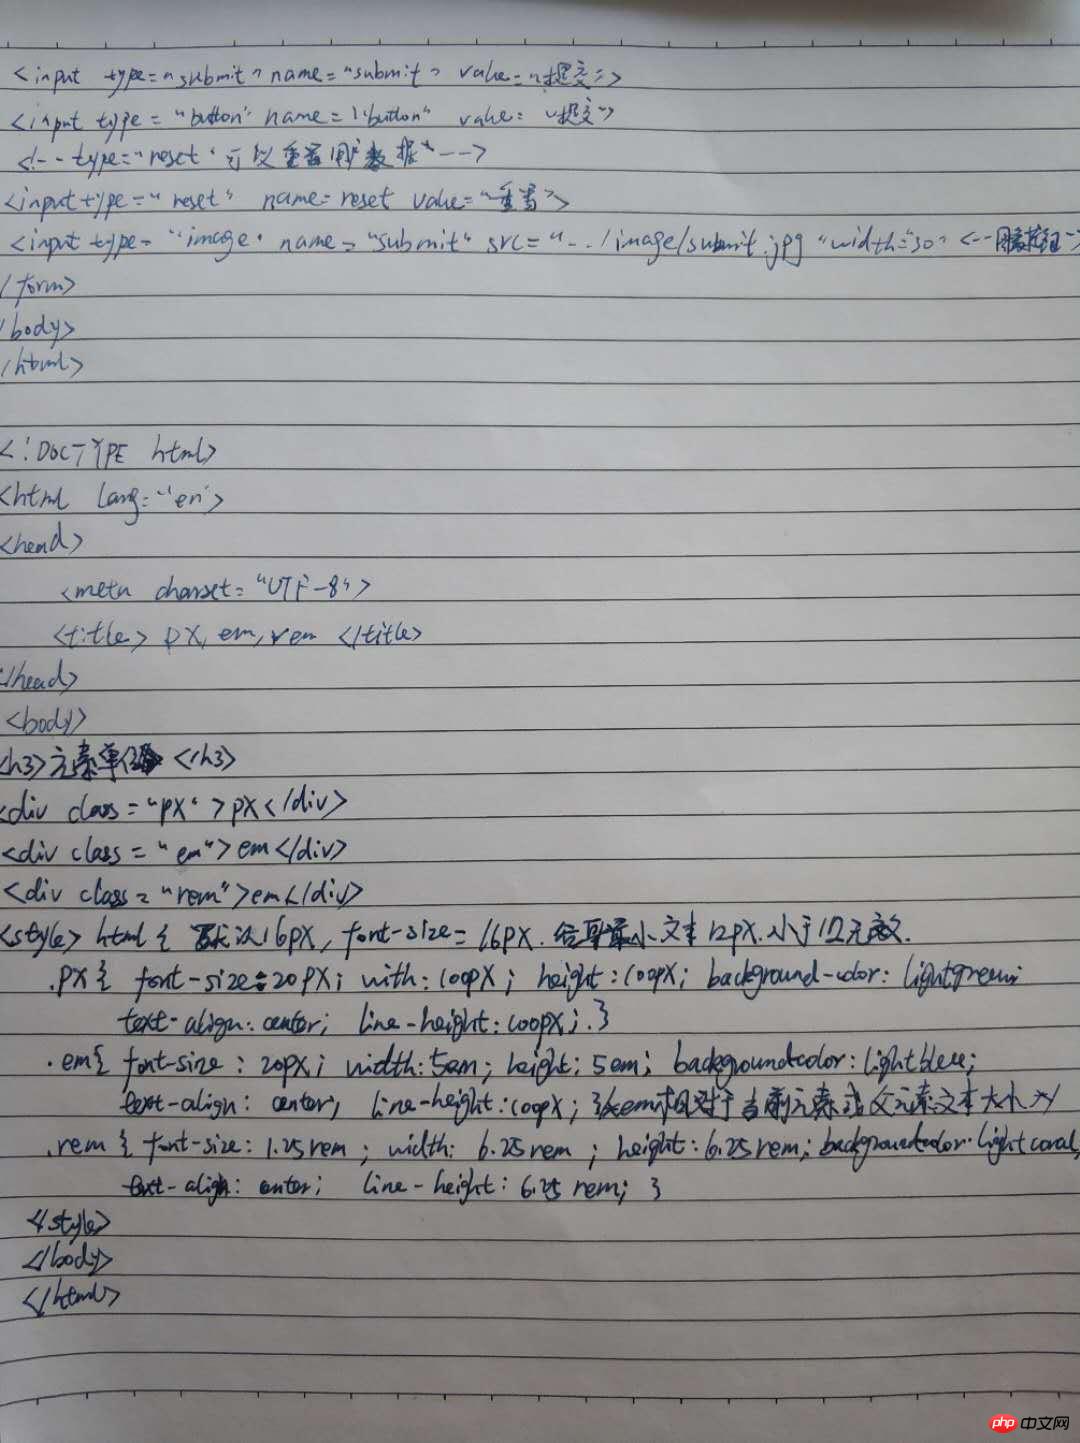 <input type="submit" name="submit" value="提交">
<input type="button" name="button" value="提交">
<!-- type="reset" 可以重置用户数据 -->
<input type="reset" name=reset value="重置">
<input type="image" name="submit" src="../image/submit.jpg" width="30" <--图像按钮-->
/form>
/body>
/html>
<!DOCTYPE html>
<html lang="en">
<head>
<meta charset="UTF-8">
<title> px, em, rem </title>
</head>
<body>
<h3>元素单位 </h3>
<div class="px">px</div>
<div class="em">em</div>
<div class="rem">em</div>
<style> html { 默认16px, font-size=16px. 最小文本12px.小于12无效.
.px { font-size:20px; with:100px; height:100px; background-color: lightgreen;
text-align: center; line-height:100px; }
.em{ font-size: 20px; width:5em; height: 5em; backgroundcolor:lightblue;
text-align: center, line-height:100px; }/*em相对于当前元素或父元素文本大小*/
.rem { font-size: 1.25rem; width: 6.25rem; height: 6.25rem; backgroundcolor:lightcoral,
text-align: center; line-height: 6.25 rem; }
</style>
</body>
</html>
php 中文网